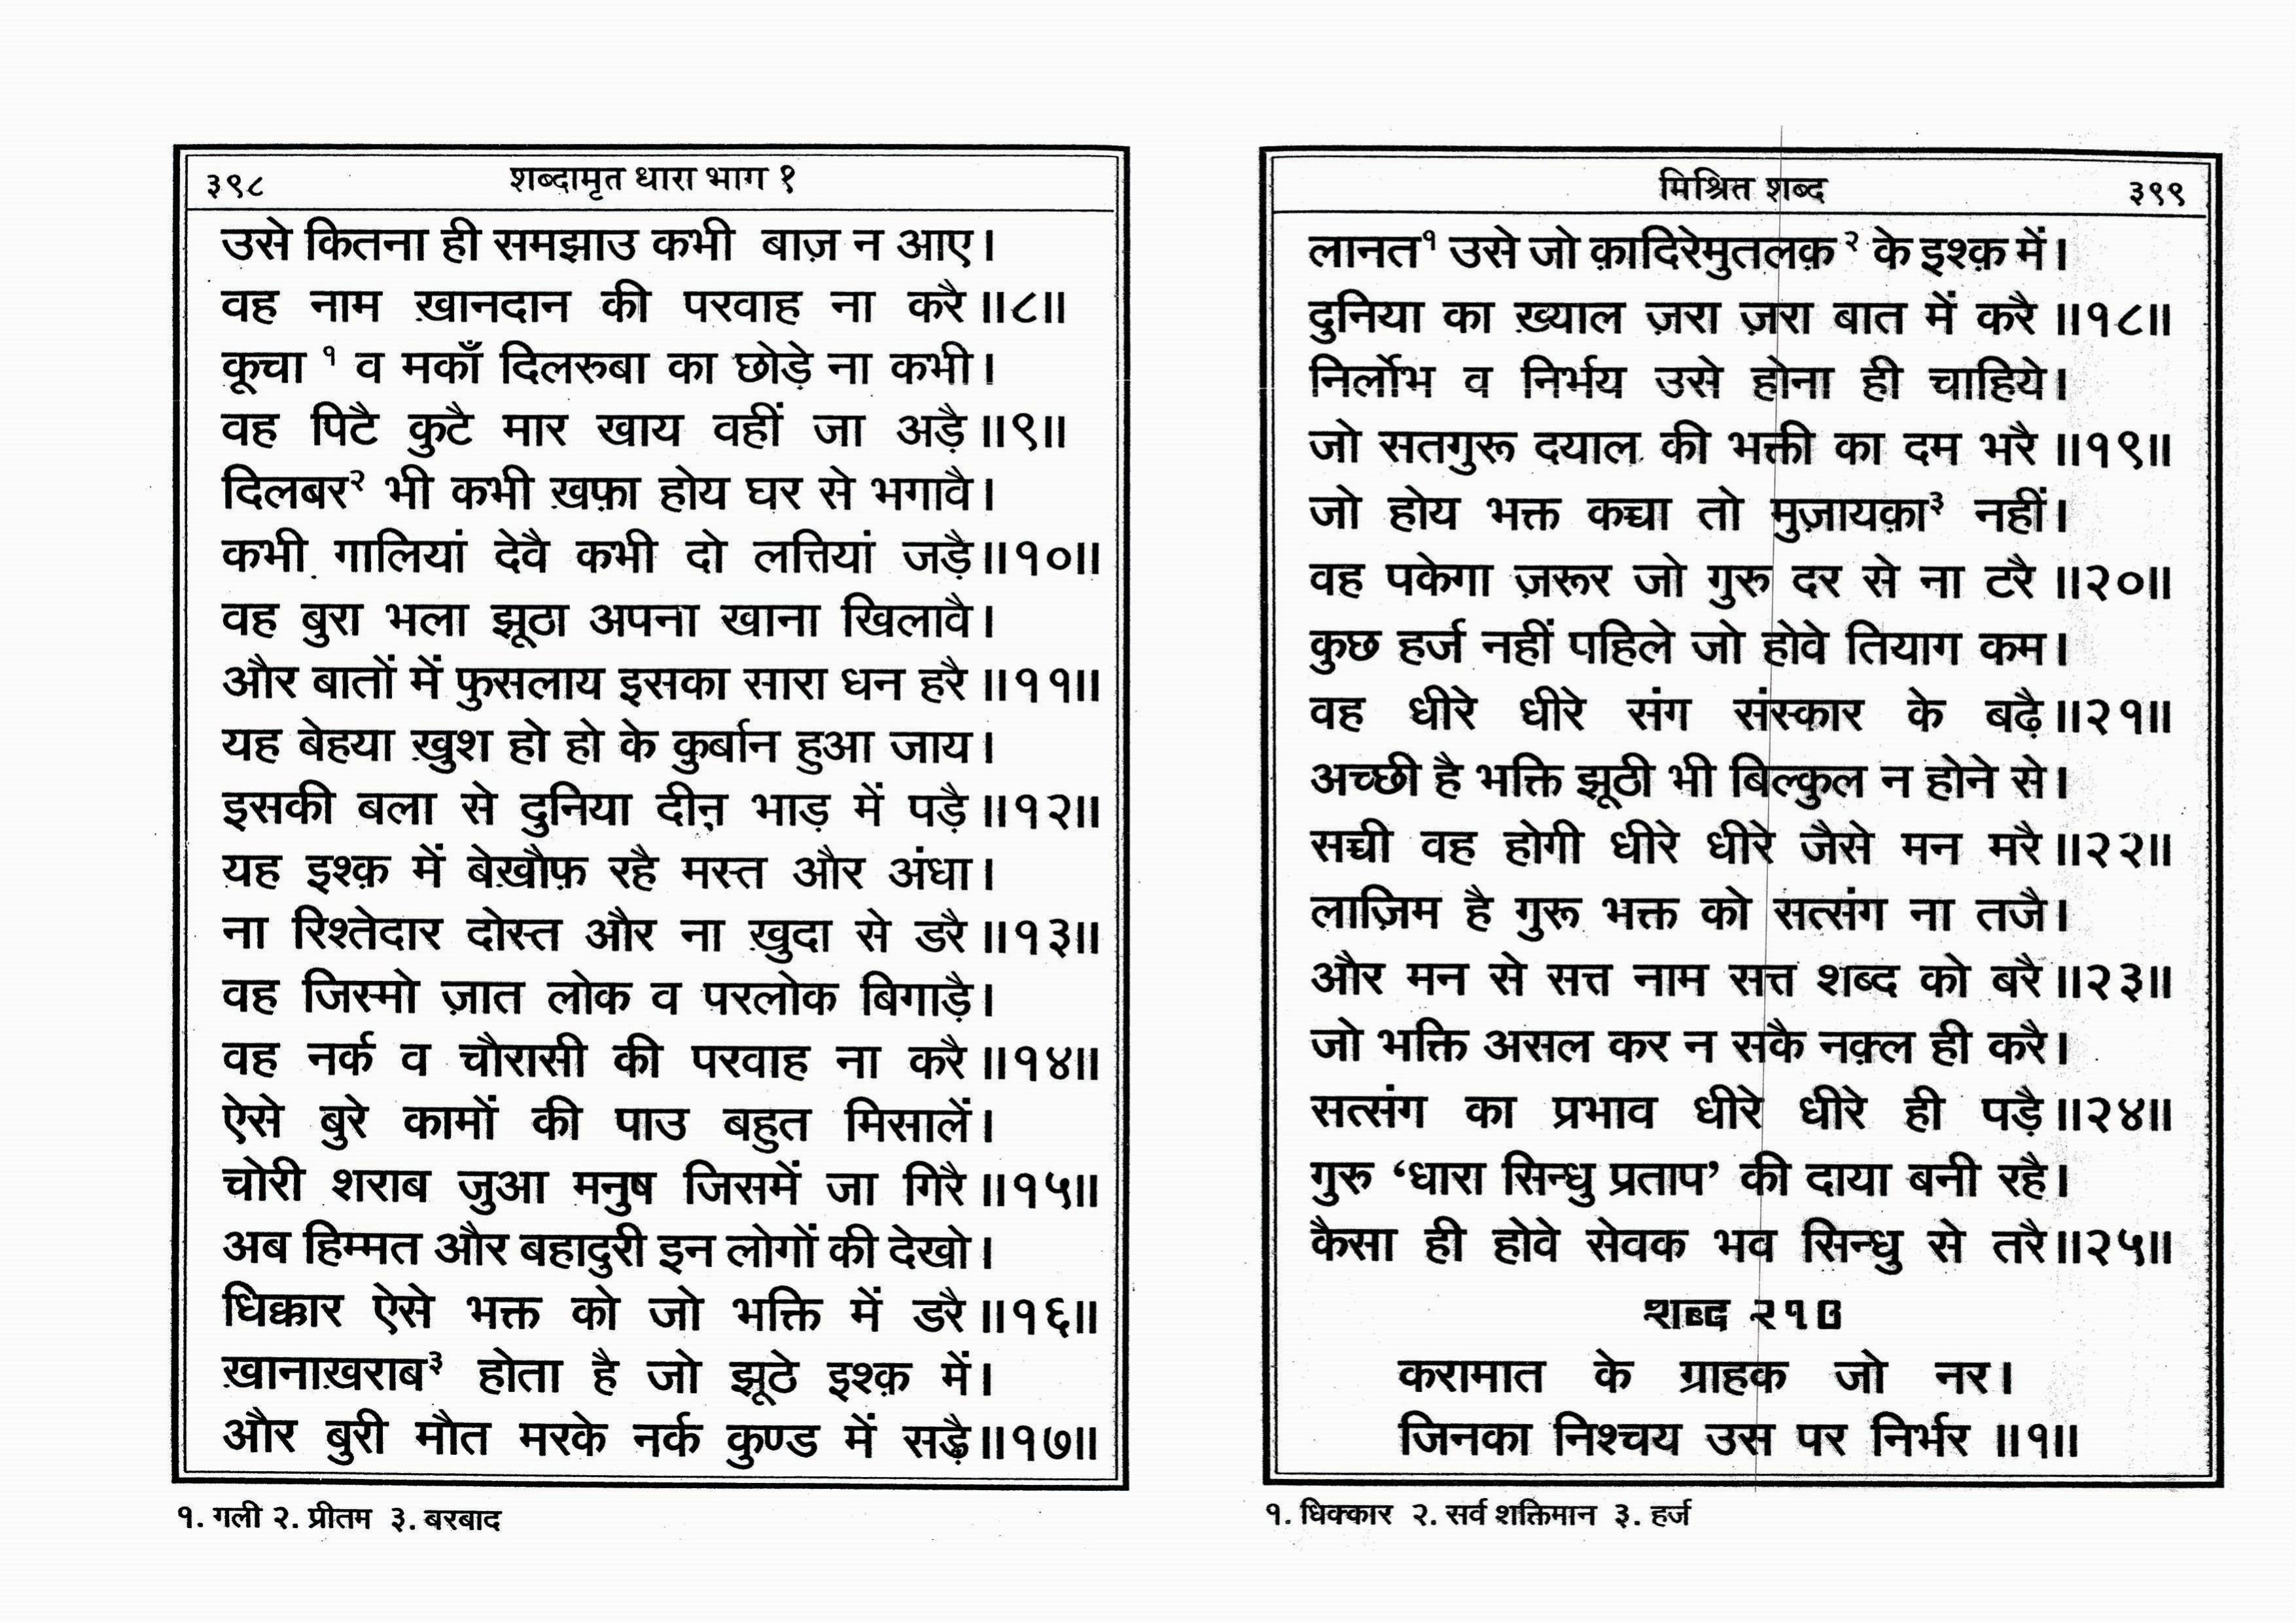 ३९८ शब्दामृत धारा भाग १
उसे कितना ही समझाउ कभी बाज़ न आए।
वह नाम ख़ानदान की परवाह ना करै॥८॥
कूचा १ व मकाँ दिलरुबा का छोड़े ना कभी।
वह पिटै कुटै मार खाय वहीं जा अड़ै॥९॥
दिलबर२ भी कभी ख़फ़ा होय घर से भगावै।
कभी गालियां देवै कभी दो लत्तियां जड़ै॥१०॥
वह बुरा भला झूठा अपना खाना खिलावै।
और बातों में फुसलाय इसका सारा धन हरै॥११॥
यह बेहया ख़ुश हो हो के कुर्बान हुआ जाय।
इसकी बला से दुनिया दीन भाड़ में पड़ै॥१२॥
यह इश्क़ में बेख़ौफ़ रहै मस्त और अंधा।
ना रिश्तेदार दोस्त और ना ख़ुदा से डरै॥१३॥
वह जिस्मो ज़ात लोक व परलोक बिगाड़ै।
वह नर्क व चौरासी की परवाह ना करै॥१४॥
ऐसे बुरे कामों की पाउ बहुत मिसालें।
चोरी शराब जुआ मनुष जिसमें जा गिरै॥१५॥
अब हिम्मत और बहादुरी इन लोगों की देखो।
धिक्कार ऐसे भक्त को जो भक्ति में डरै॥१६॥
ख़ानाख़राब३ होता है जो झूठे इश्क़ में।
और बुरी मौत मरके नर्क कुण्ड में सड़ै॥१७॥
१. गली २. प्रीतम ३. बरबाद
मिश्रित शब्द ३९९
लानत१ उसे जो क़ादिरेमुतलक़२ के इश्क़ में।
दुनिया का ख़्याल ज़रा ज़रा बात में करै॥१८॥
निर्लोभ व निर्भय उसे होना ही चाहिये।
जो सतगुरू दयाल की भक्ती का दम भरै॥१९॥
जो होय भक्त कच्चा तो मुज़ायक़ा३ नहीं।
वह पकेगा ज़रूर जो गुरु दर से ना टरै॥२०॥
कुछ हर्ज नहीं पहिले जो होवे तियाग कम।
वह धीरे धीरे संग संस्कार के बढ़ै॥२१॥
अच्छी है भक्ति झूठी भी बिल्कुल न होने से।
सच्ची वह होगी धीरे धीरे जैसे मन मरै॥२२॥
लाज़िम है गुरू भक्त को सत्संग ना तजै।
और मन से सत्त नाम सत्त शब्द को बरै॥२३॥
जो भक्ति असल कर न सकै नक़्ल ही करै।
सत्संग का प्रभाव धीरे धीरे ही पड़ै॥२४॥
गुरु ‘धारा सिन्धु प्रताप’ की दाया बनी रहै।
कैसा ही होवे सेवक भव सिन्धु से तरै॥२५॥
शब्द २१0
करामात के ग्राहक जो नर।
जिनका निश्चय उस पर निर्भर॥१॥
१. धिक्कार २. सर्व शक्तिमान ३. हर्ज